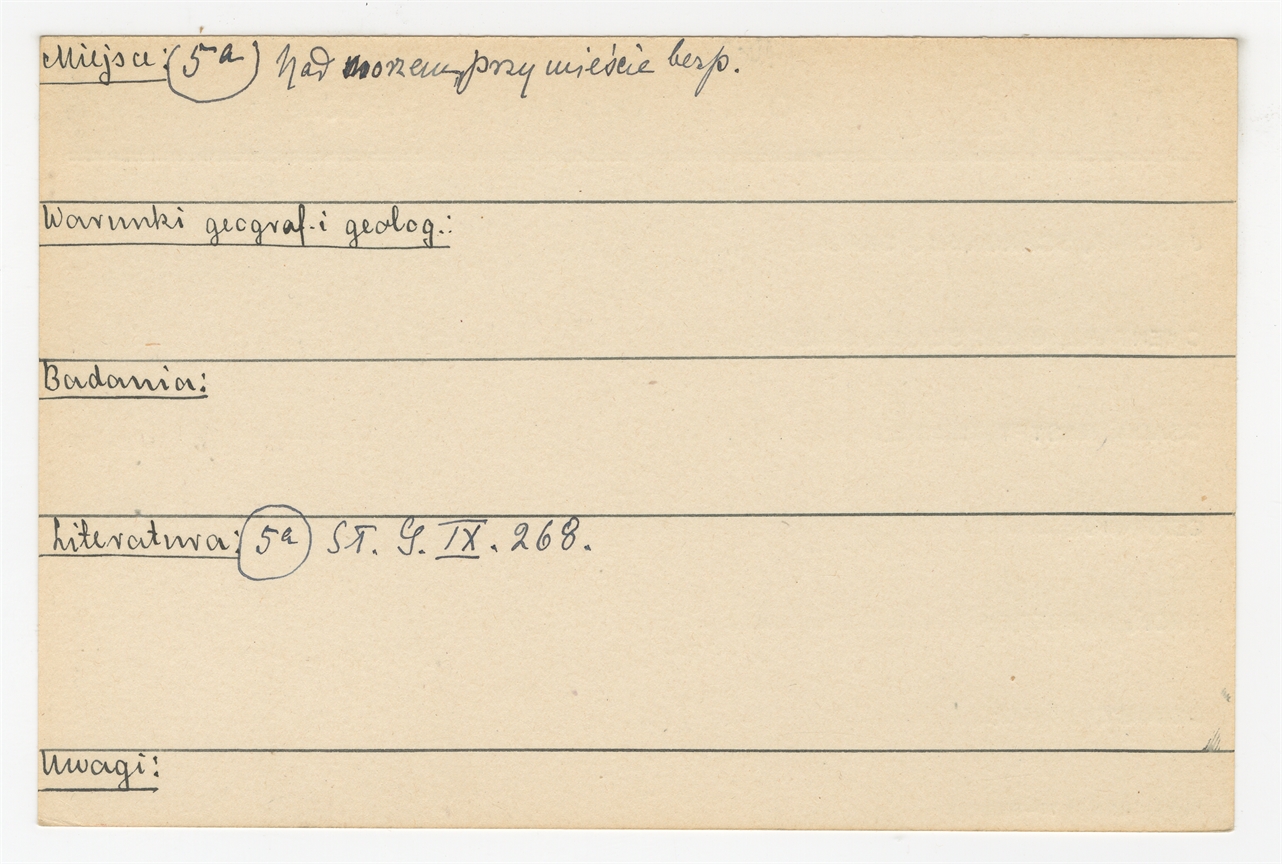 Miejsce: 5a Nad morzem, przy mieście bezp.
Warunki geograf. i geolog.:
Badania:
Literatura: 5a St. G. IX. 268.
Uwagi: